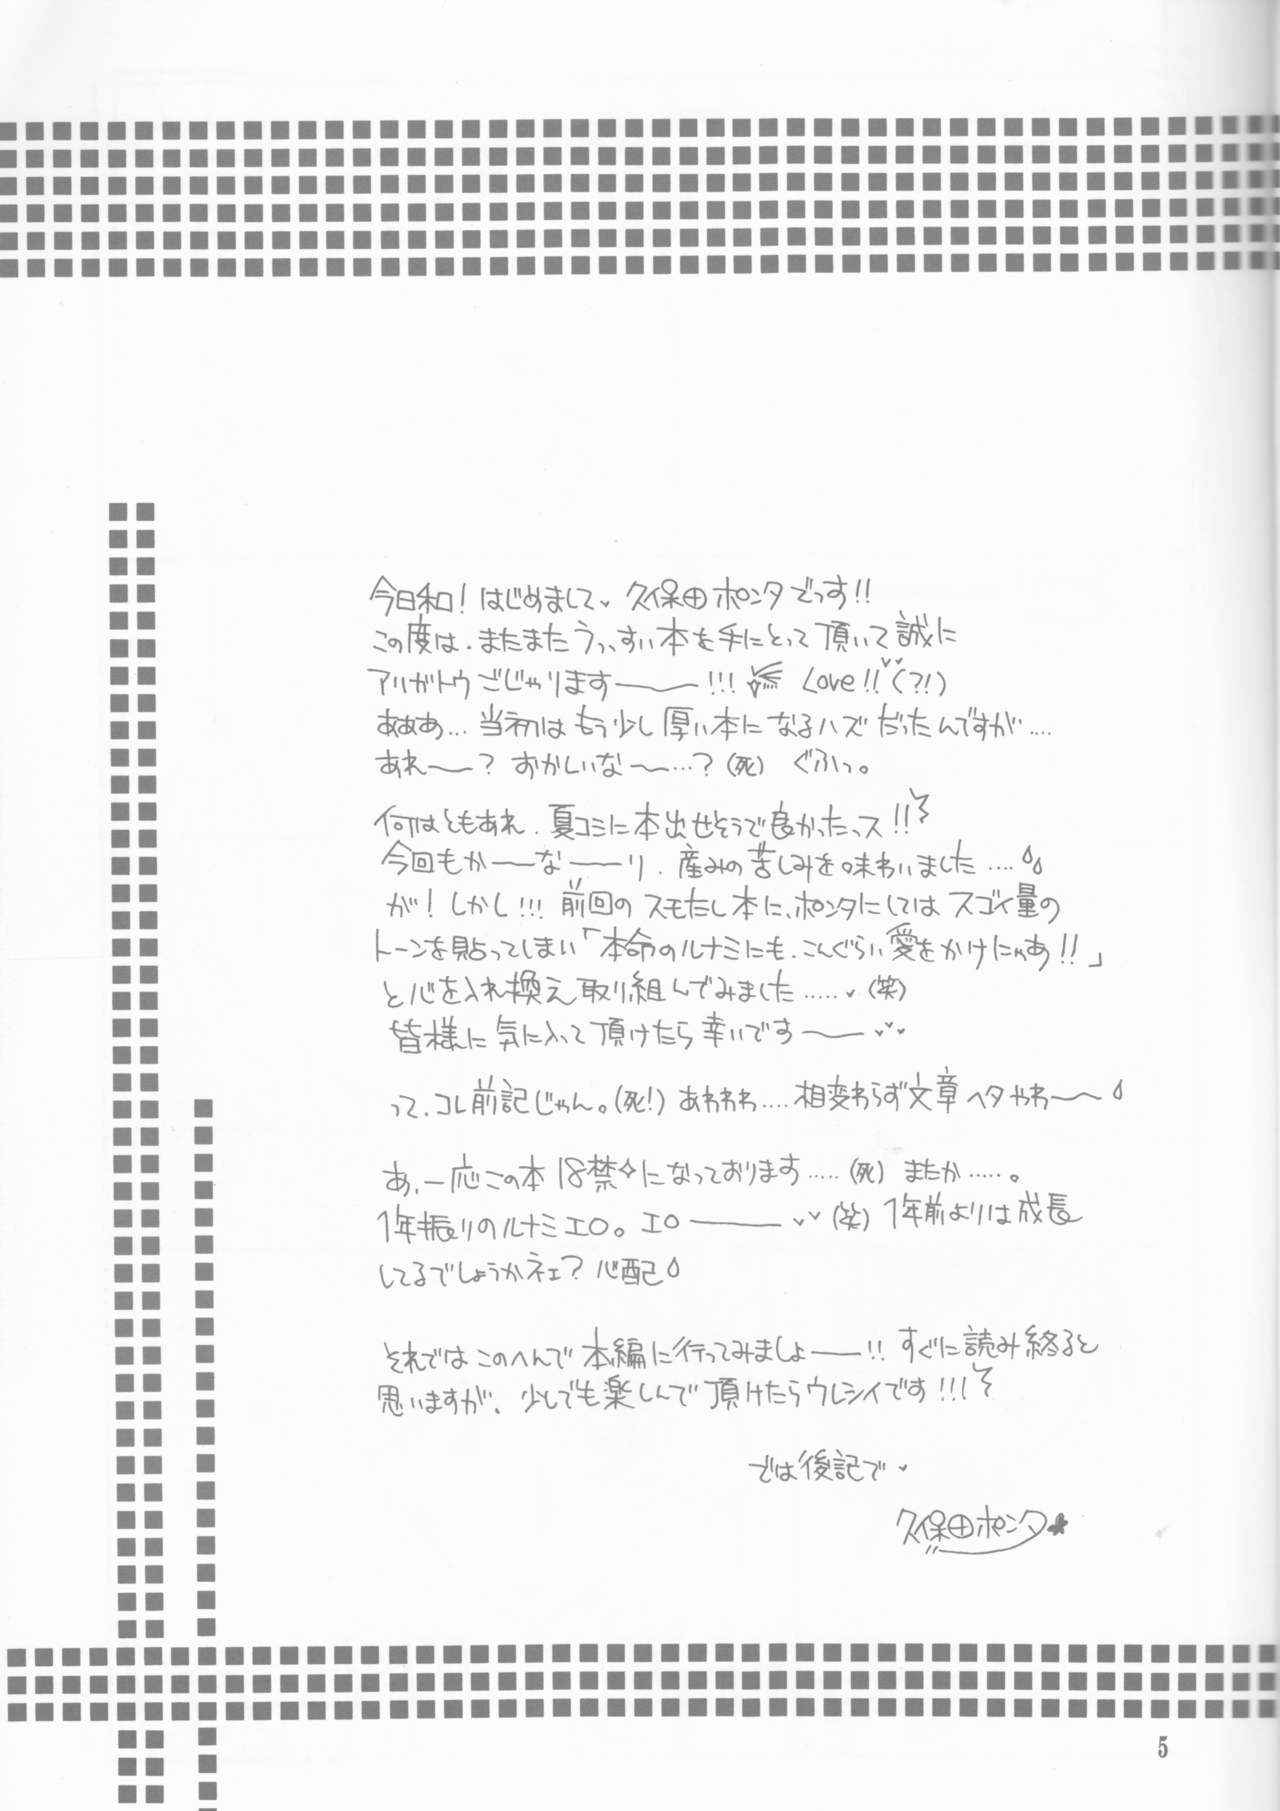 今日和！はじめまして♥久保田ポンタでっす!!
この度は、またまたうっすい本を手にとって頂いて誠に
アリガトウごじゃりますーー!!! Love!!♥♥(?!)
あああ…当初はもう少し厚い本になるハズだったんですが….
あれー？おかしいなー…？(死) ぐふっ。
何はともあれ、夏コミに本出せそうで良かったっス!!
今回もかーーなーーり、産みの苦しみを味わいました….
が！しかし!!!前回のスモたし本に、ポンタにしてはスゴイ量の
トーンを貼ってしまい「本命のルナミにも、こんぐらい愛をかけにゃあ!!」
と心を入れ換え取り組んでみました…..♥(笑)
皆様に気に入って頂けたら幸いですーー♥♥♥
って、コレ前記じゃん。(死!) あわわわ….相変わらず文章ヘタやわ〜〜
あ、一応この本18禁✧になっております…..(死) またか…..。
1年振りのルナミエロ。エローーー♥♥(笑) 1年前よりは成長
してるでしょうかネェ？心配
それではこのへんで本編に行ってみましょーー!!すぐに読み終ると
思いますが、少しでも楽しんで頂けたらウレシイです!!!
では後記で♥
久保田ポンタ★
5